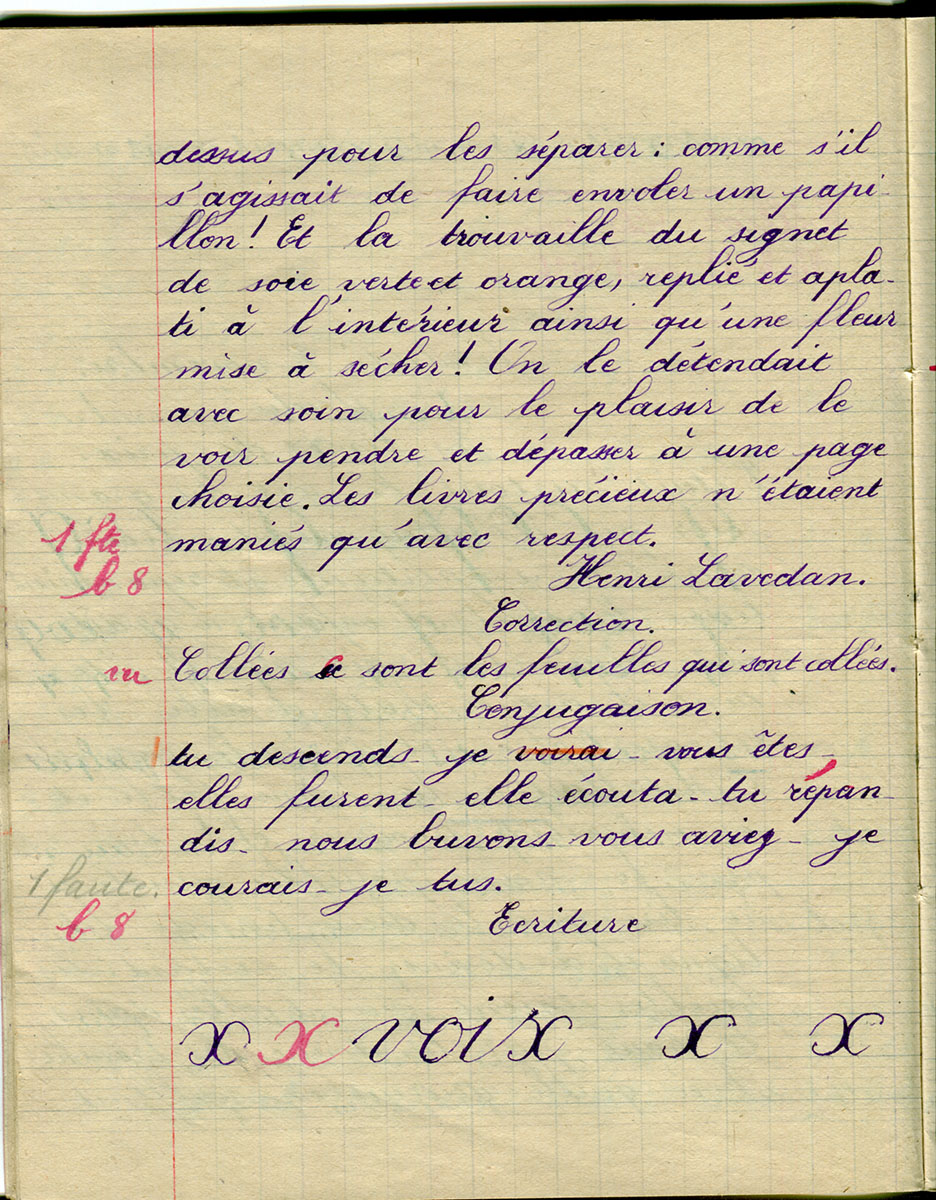 dessus pour les séparer : comme s'il
s'agissait de faire envoler un papi-
llon ! Et la trouvaille du signet
de soie verte et orange, replié et apla-
ti à l'intérieur ainsi qu'une fleur
mise à sécher ! On le détendait
avec soin pour le plaisir de le
voir pendre et dépasser à une page
choisie. Les livres précieux n'étaient
1 fte
maniés qu'avec respect.
b 8
Henri Lavedan.
Correction.
vu Collées ce sont les feuilles qui sont collées.
Conjugaison.
tu descends - je voirai - vous êtes -
elles furent - elle écouta - tu répan-
dis - nous buvons - vous aviez - je
1 faute.
courais - je tus.
b 8
Ecriture
x x voix x x